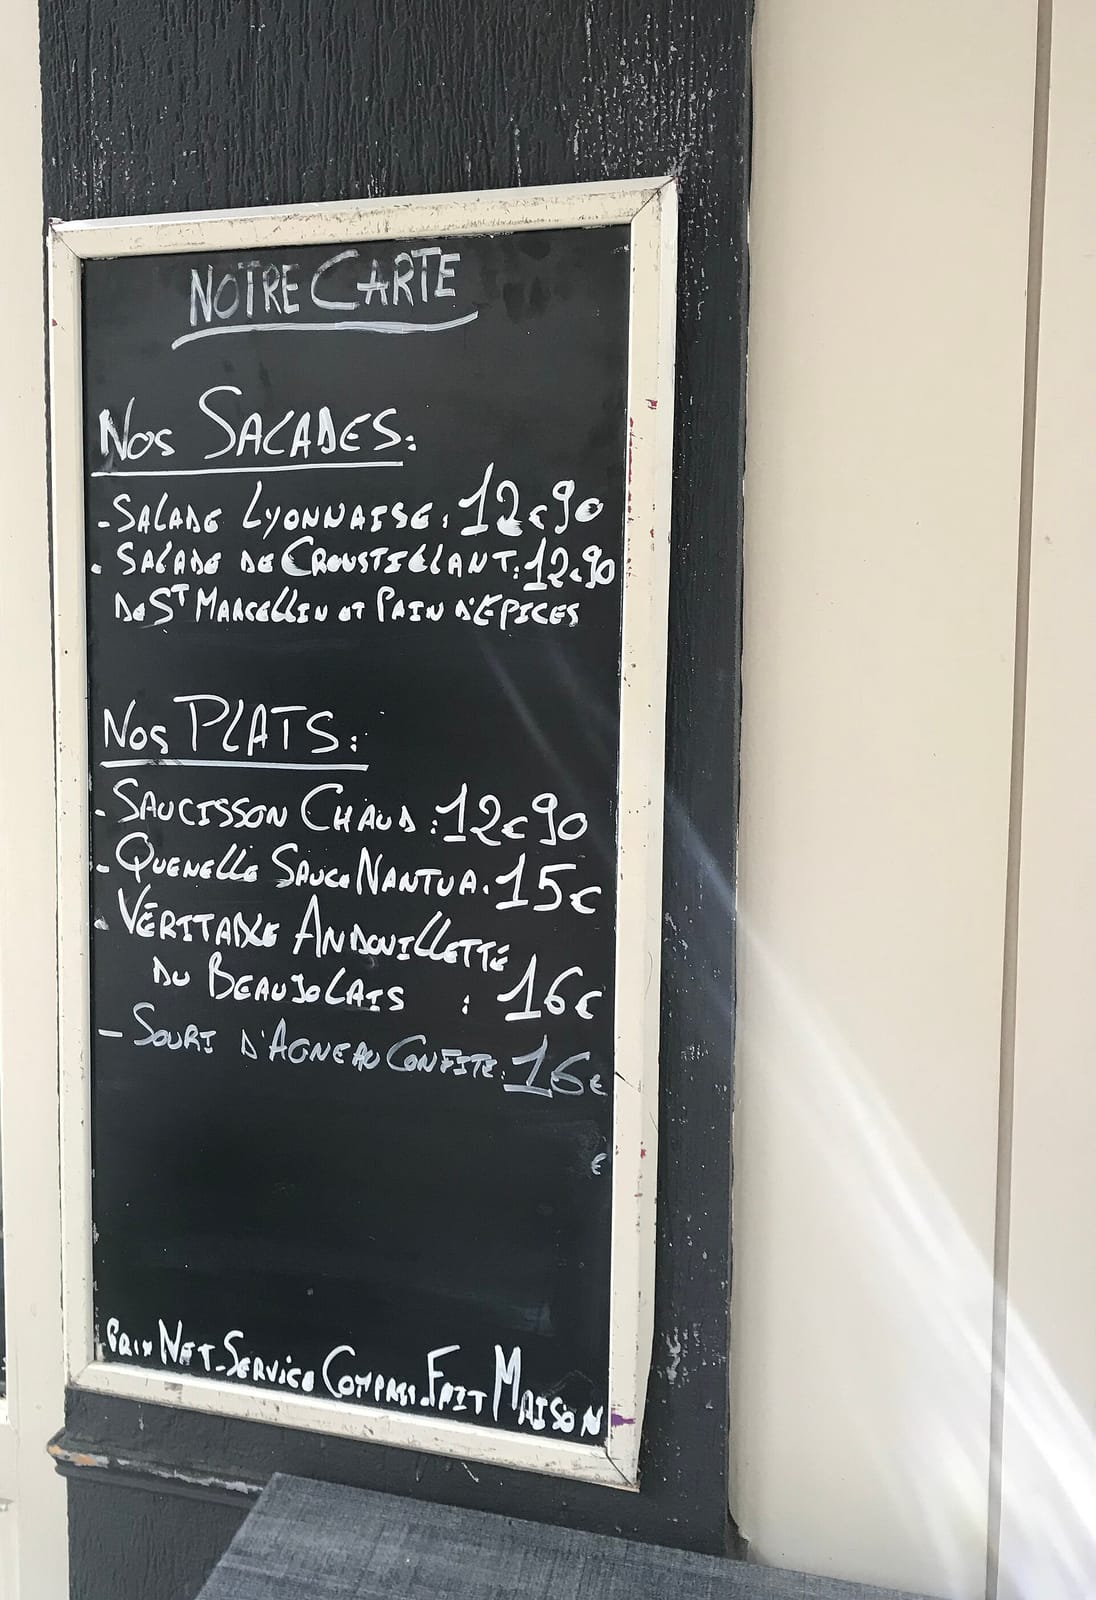 NOTRE CARTE
Nos SALADES:
- SALADE LYONNAISE: 12€90
- SALADE DE CROUSTILLANT: 12.90
DE ST MARCELLIN ET PAIN D'EPICES
Nos PLATS:
- SAUCISSON CHAUD: 12€90
- QUENELLE SAUCE NANTUA. 15€
- VÉRITABLE ANDOUILLETTE
DU BEAUJOLAIS : 16€
- SOURI D'AGNEAU CONFITE: 16€
€
PRIX NET. SERVICE COMPRIS. FAIT MAISON